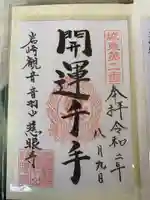 第二番
奉拝 令和二年
八月九日
開運千手
岩崎観音 音羽山 慈眼寺